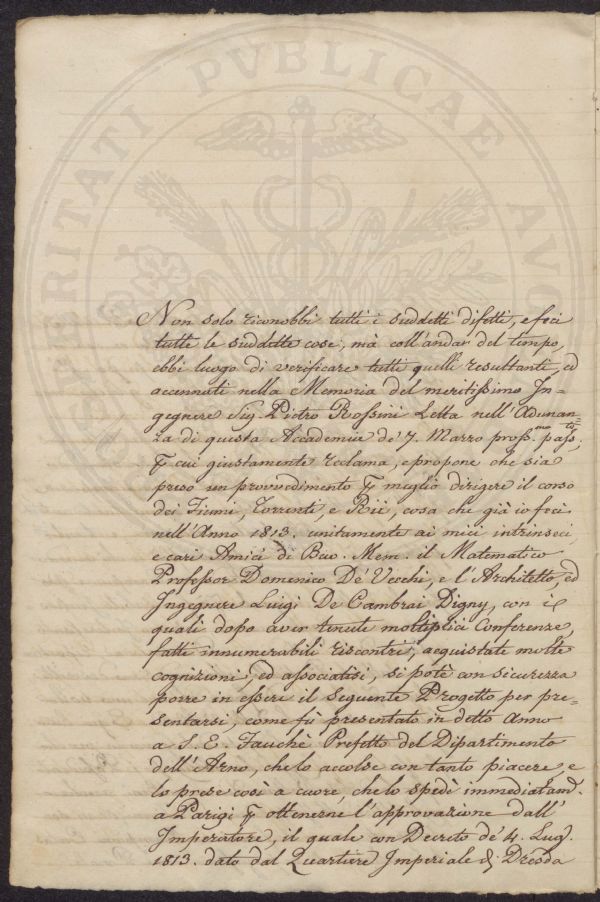 PROSPERITATI PVBLICAE AVGENDAE
Non solo riconobbi tutti i suddetti difetti, e feci
tutte le suddette cose; mà coll'andar del tempo,
ebbi luogo di verificare tutti quelli resultanti, ed
accennati nella Memoria del meritissimo In-
gegnere Sig. Pietro Rossini Letta nell'Adunan-
za di questa Accademia de' 7. Marzo pross.mo pass.to;
p cui giustamente reclama, e propone che sia
preso un provvedimento p meglio dirigere il corso
dei Fiumi, Torrenti, e Rii, cosa che già io feci
nell'Anno 1813. unitamente ai miei intrinseci,
e cari Amici di Buo. Mem. il Matematico
Professor Domenico De' Vecchi, e l'Architetto, ed
Ingegnere Luigi De Cambrai Digny, con i
quali dopo aver tenute moltiplici Conferenze,
fatti innumerabili riscontri, acquistate molte
cognizioni, ed associatisi, si potè con sicurezza
porre in essere il seguente Progetto per pre=
sentarsi, come fù presentato in detto Anno
a S. E. Fauchè Prefetto del Dipartimento
dell'Arno, che lo accolse con tanto piacere, e
lo prese così a cuore, che lo spedì immediatam.
a Parigi p ottenerne l'approvazione dall'
Imperatore, il quale con Decreto de' 4. Lug.
1813. dato dal Quartiere Imperiale di Dresda